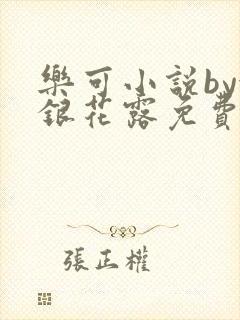 樂可小説by
銀花露免費
張正權